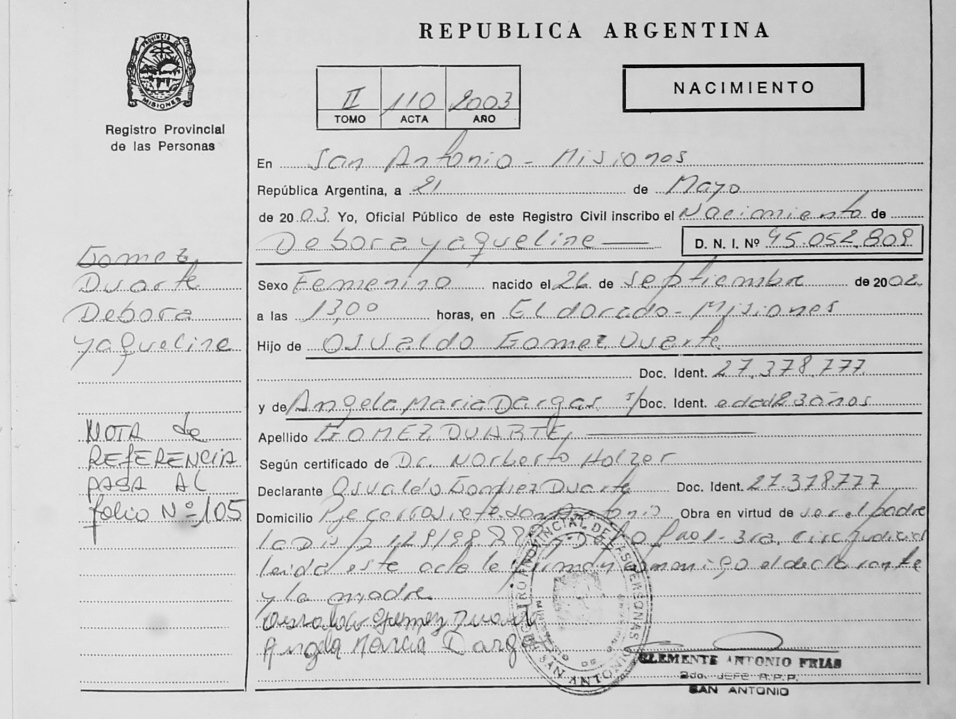 REPUBLICA ARGENTINA
PROVINCIA DE
MISIONES
Registro Provincial
de las Personas
II 110 2003
TOMO ACTA AÑO
NACIMIENTO
En San Antonio - Misiones
República Argentina, a 21 de Mayo
de 2003 Yo, Oficial Público de este Registro Civil inscribo el Nacimiento de
Debora Yaqueline D. N. I. Nº 45.052.809
Gomez
Duarte
Debora
Yaqueline
Sexo Femenino nacido el 26 de septiembre de 2002
a las 13,00 horas, en Eldorado - Misiones
Hijo de Osvaldo Gomez Duarte
Doc. Ident. 27.378.777
y de Angela Maria Dargas Doc. Ident. edad 23 años
Apellido GOMEZ DUARTE,
Según certificado de Dr. Norberto Holzer
Declarante Osvaldo Gomez Duarte Doc. Ident. 27.378.777
Domicilio San Antonio Obra en virtud de ser el padre
leida este acta le firman conmigo el declarante
y la madre
Osvaldo Gomez Duart
Angela Maria Darga
NOTA de
REFERENCIA
PASA AL
folio Nº 105
REGISTRO PROVINCIAL DE LAS PERSONAS
SAN ANTONIO
CLEMENTE ANTONIO FRIAS
2do. JEFE R.P.P.
SAN ANTONIO